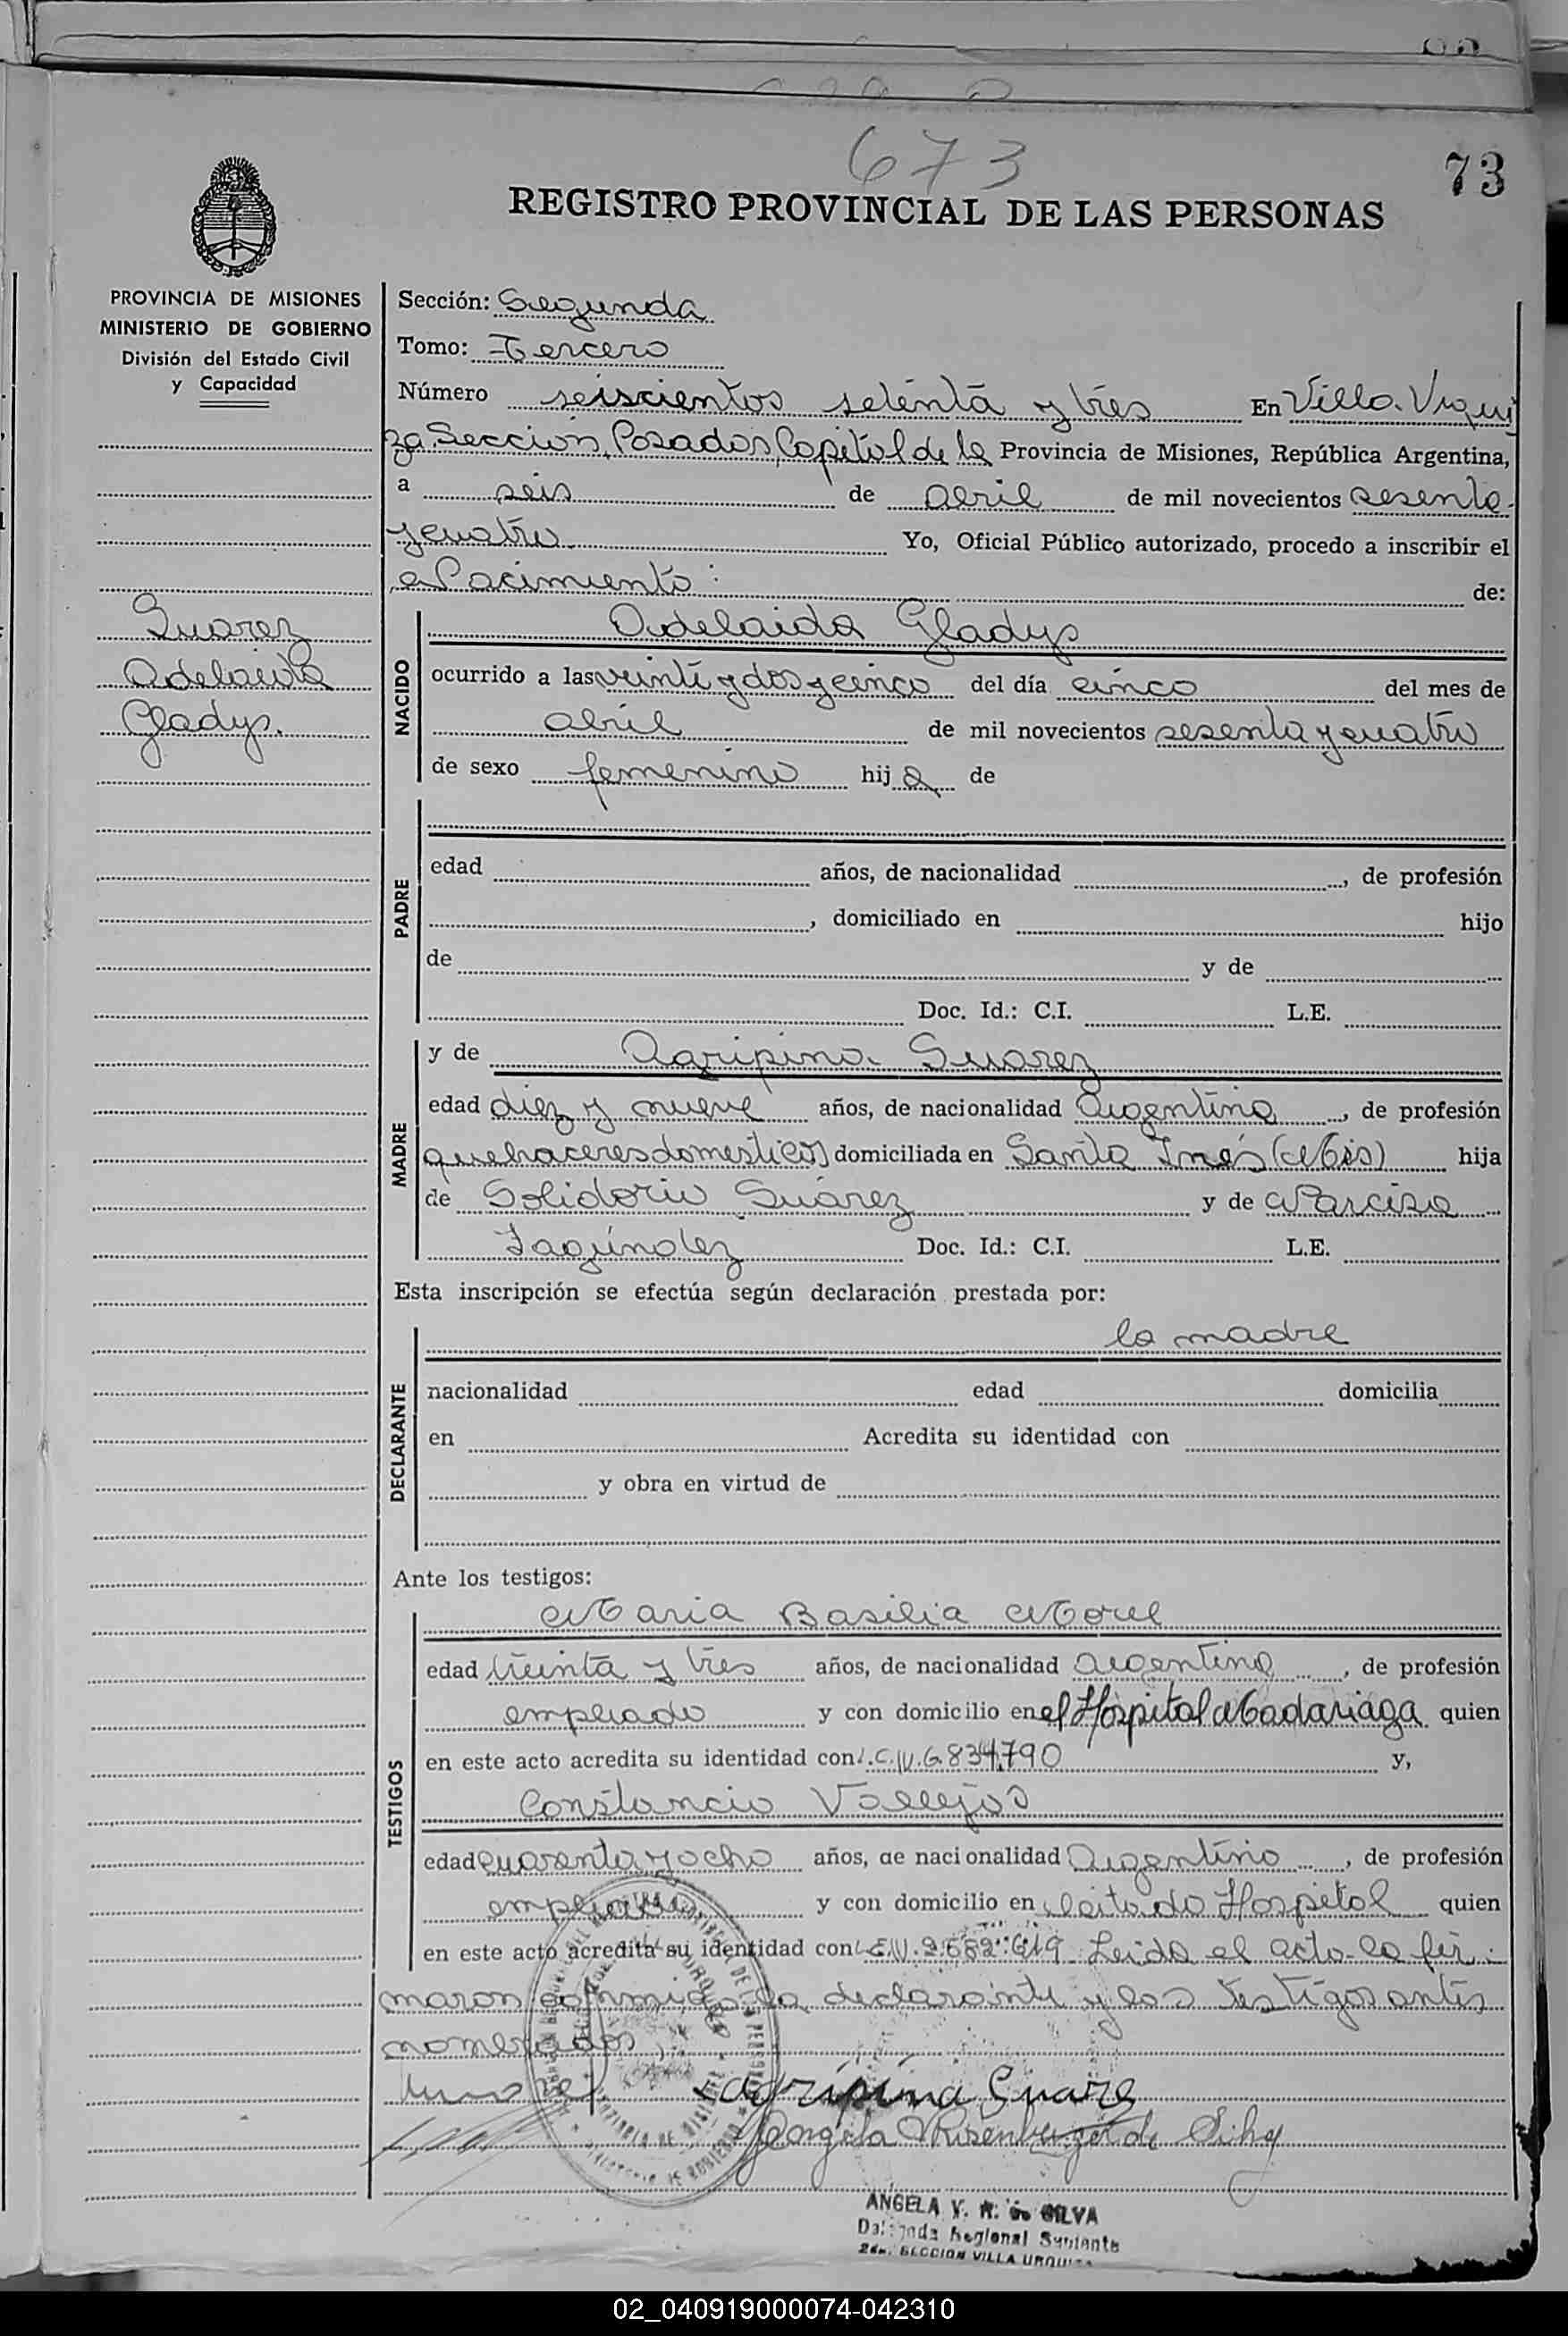 673
73
REGISTRO PROVINCIAL DE LAS PERSONAS
PROVINCIA DE MISIONES
MINISTERIO DE GOBIERNO
División del Estado Civil
y Capacidad
Suarez
Adelaida
Gladys.
Sección: Segunda
Tomo: Tercero
Número seiscientos setenta y tres En Villa Urqui
za Sección, Posadas, Capital de la Provincia de Misiones, República Argentina,
a seis de abril de mil novecientos sesenta
y cuatro Yo, Oficial Público autorizado, procedo a inscribir el
Nacimiento: de:
NACIDO
Adelaida Gladys
ocurrido a las veinte y dos y cinco del día cinco del mes de
abril de mil novecientos sesenta y cuatro
de sexo femenino hija de
PADRE
edad años, de nacionalidad , de profesión
, domiciliado en hijo
de y de
Doc. Id.: C.I. L.E.
MADRE
y de Agripina Suarez
edad diez y nueve años, de nacionalidad Argentina , de profesión
quehaceres domesticos domiciliada en Santa Inés (Mis) hija
de Solidorio Suárez y de Narcisa
Doc. Id.: C.I. L.E.
Esta inscripción se efectúa según declaración prestada por:
DECLARANTE
la madre
nacionalidad edad domicilia
en Acredita su identidad con
y obra en virtud de
Ante los testigos:
TESTIGOS
Maria Basilia Morel
edad treinta y tres años, de nacionalidad argentina , de profesión
empleada y con domicilio en el Hospital Madariaga quien
en este acto acredita su identidad con L.C.Nº 6.834.790 y,
Constancio Vallejos
edad cuarenta y ocho años, de nacionalidad Argentino , de profesión
empleado y con domicilio en citado Hospital quien
en este acto acredita su identidad con L.E.Nº 2.582.419 Leida el acta la fir
maron conmigo la declarante y los testigos antes
nombrados
Agripina Suarez
Angela de Silva
ANGELA V. R. de SILVA
Delegada Regional Suplente
2da. SECCION VILLA URQUIZA
02_040919000074-042310